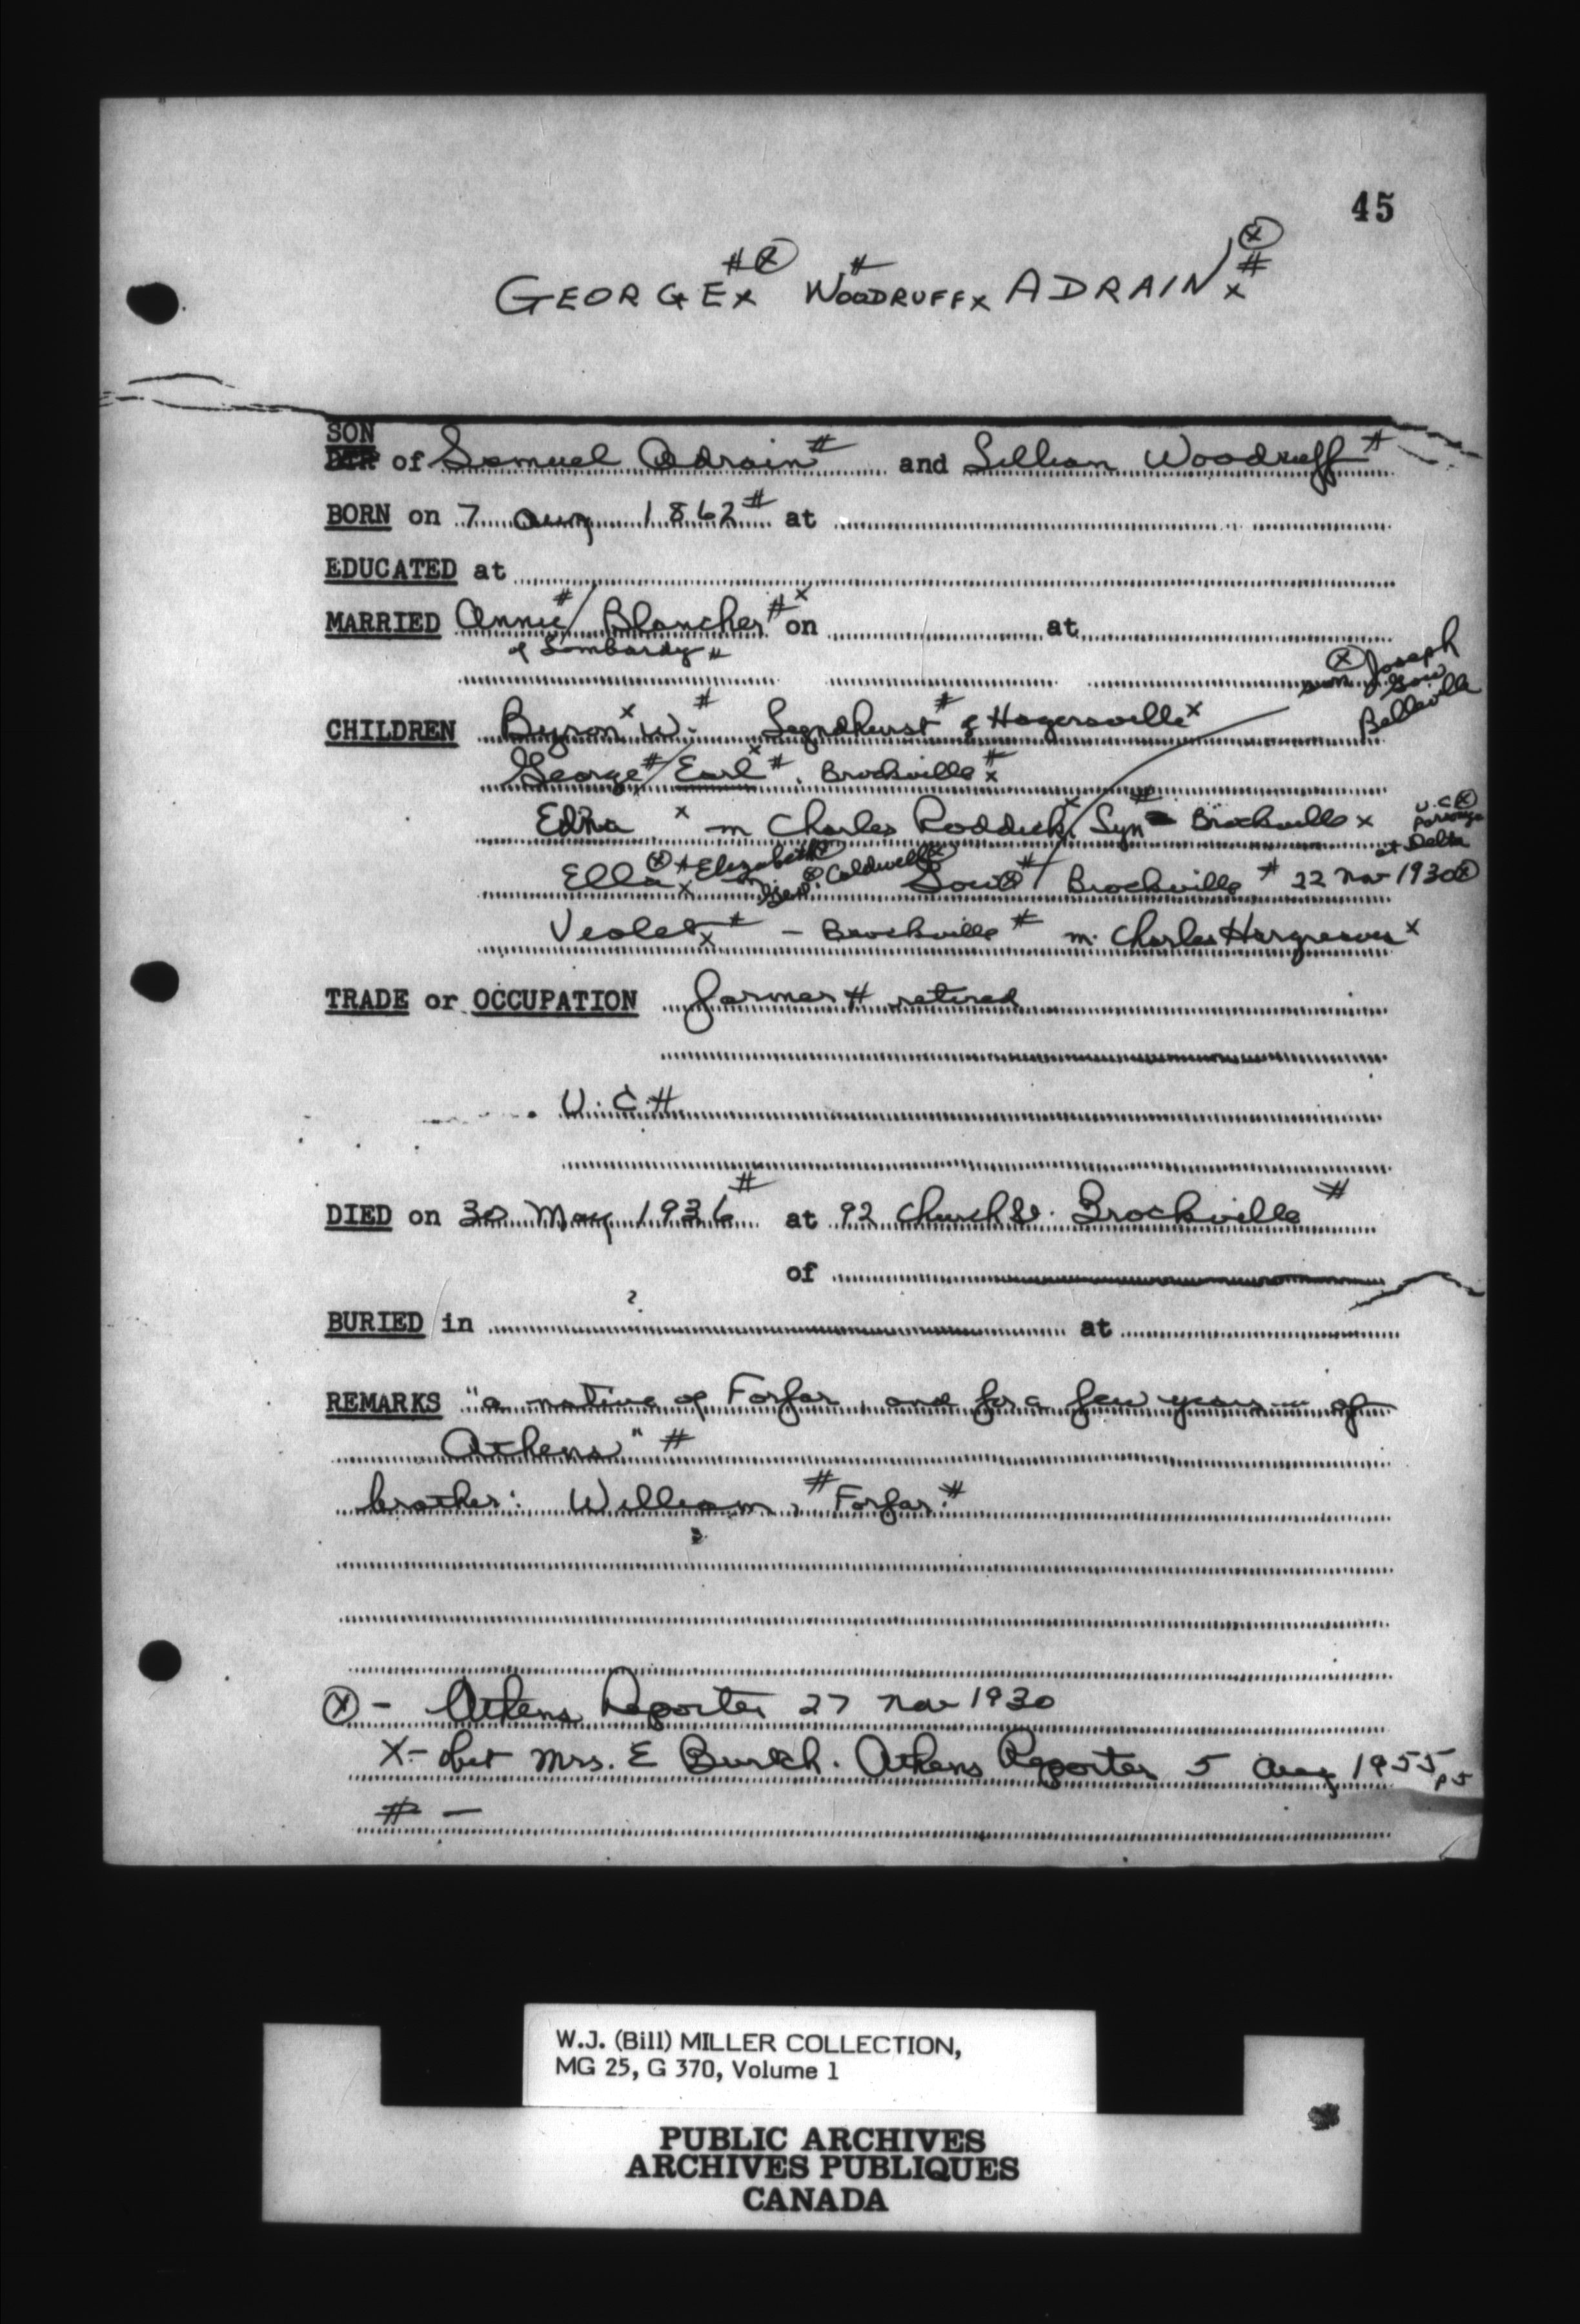 45
GEORGE x # ⓧ WOODRUFF x # ADRAIN x # ⓧ
SON
DTR of Samuel Adrain # and Lillian Woodruff #
BORN on 7 Aug 1862 # at
EDUCATED at
MARRIED Annie # / Blancher # x on at
of Lombardy #
ⓧ Joseph
son of Gow
Belleville
CHILDREN Byron x W. # Lyndhurst # & Hagersville x
George # / Earl x # . Brockville # x
Edna x m Charles Roddick x Lyn # Brockville x
U.C ⓧ
parsonage
at Delta
Ella ⓧ x # Elizabeth ⓧ m. ⓧ Caldwell ⓧ Gow ⓧ # / Brockville # 22 Nov 1930 ⓧ
Violet x # - Brockville # m. Charles Hargreaves x
TRADE or OCCUPATION farmer # retired
U.C. #
DIED on 30 May 1936 # at 92 Church St. Brockville #
of
?
BURIED in at
REMARKS "a native of Forfar, and for a few years ... of
Athens" #
brother: William, # Forfar. #
ⓧ - Athens Reporter 27 Nov 1930
X - obit Mrs. E Burtch. Athens Reporter 5 Aug 1955 p5
# -
W.J. (Bill) MILLER COLLECTION,
MG 25, G 370, Volume 1
PUBLIC ARCHIVES
ARCHIVES PUBLIQUES
CANADA